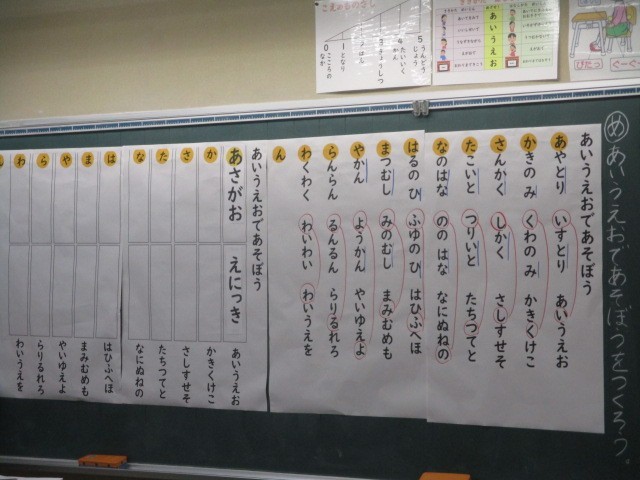 めあいうえおであそぼうをつくろう。
あいうえおであそぼう
あやとり いすとり あいうえお
かきのみ くわのみ かきくけこ
さんかく しかく さしすせそ
たこいと つりいと たちつてと
なのはな ののはな なにぬねの
はるのひ ふゆのひ はひふへほ
まつむし みのむし まみむめも
やかん ようかん やいゆえよ
らんらん るんるん らりるれろ
わくわく わいわい わいうえを
ん
あいうえおであそぼう
あさがお えにっき あいうえお
か かきくけこ
さ さしすせそ
た たちつてと
な なにぬねの
は はひふへほ
ま まみむめも
や やいゆえよ
ら らりるれろ
わ わいうえを
こえのものさし
5 うんどうじょう
4 たいいくかん
3 きょうしつ
1 となり
0 こころのなか
あいうえお
ぴたっ
ぐーぺた